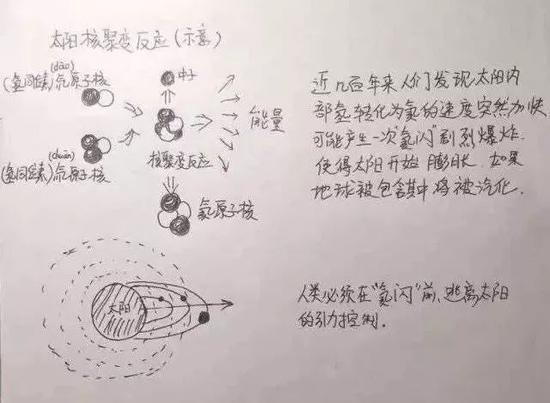 太阳核聚变反应(示意)
(dāo)
(氢同位素)氘原子核
中子
能量
核聚变反应
(chuān)
(氢同位素)氚原子核
氦原子核
近几百年来人们发现太阳内
部氢转化为氦的速度突然加快
可能产生一次氦闪剧烈爆炸.
使得太阳开始膨胀.如果
地球被包含其中将被汽化.
太阳
人类必须在"氦闪"前,逃离太阳
的引力控制.